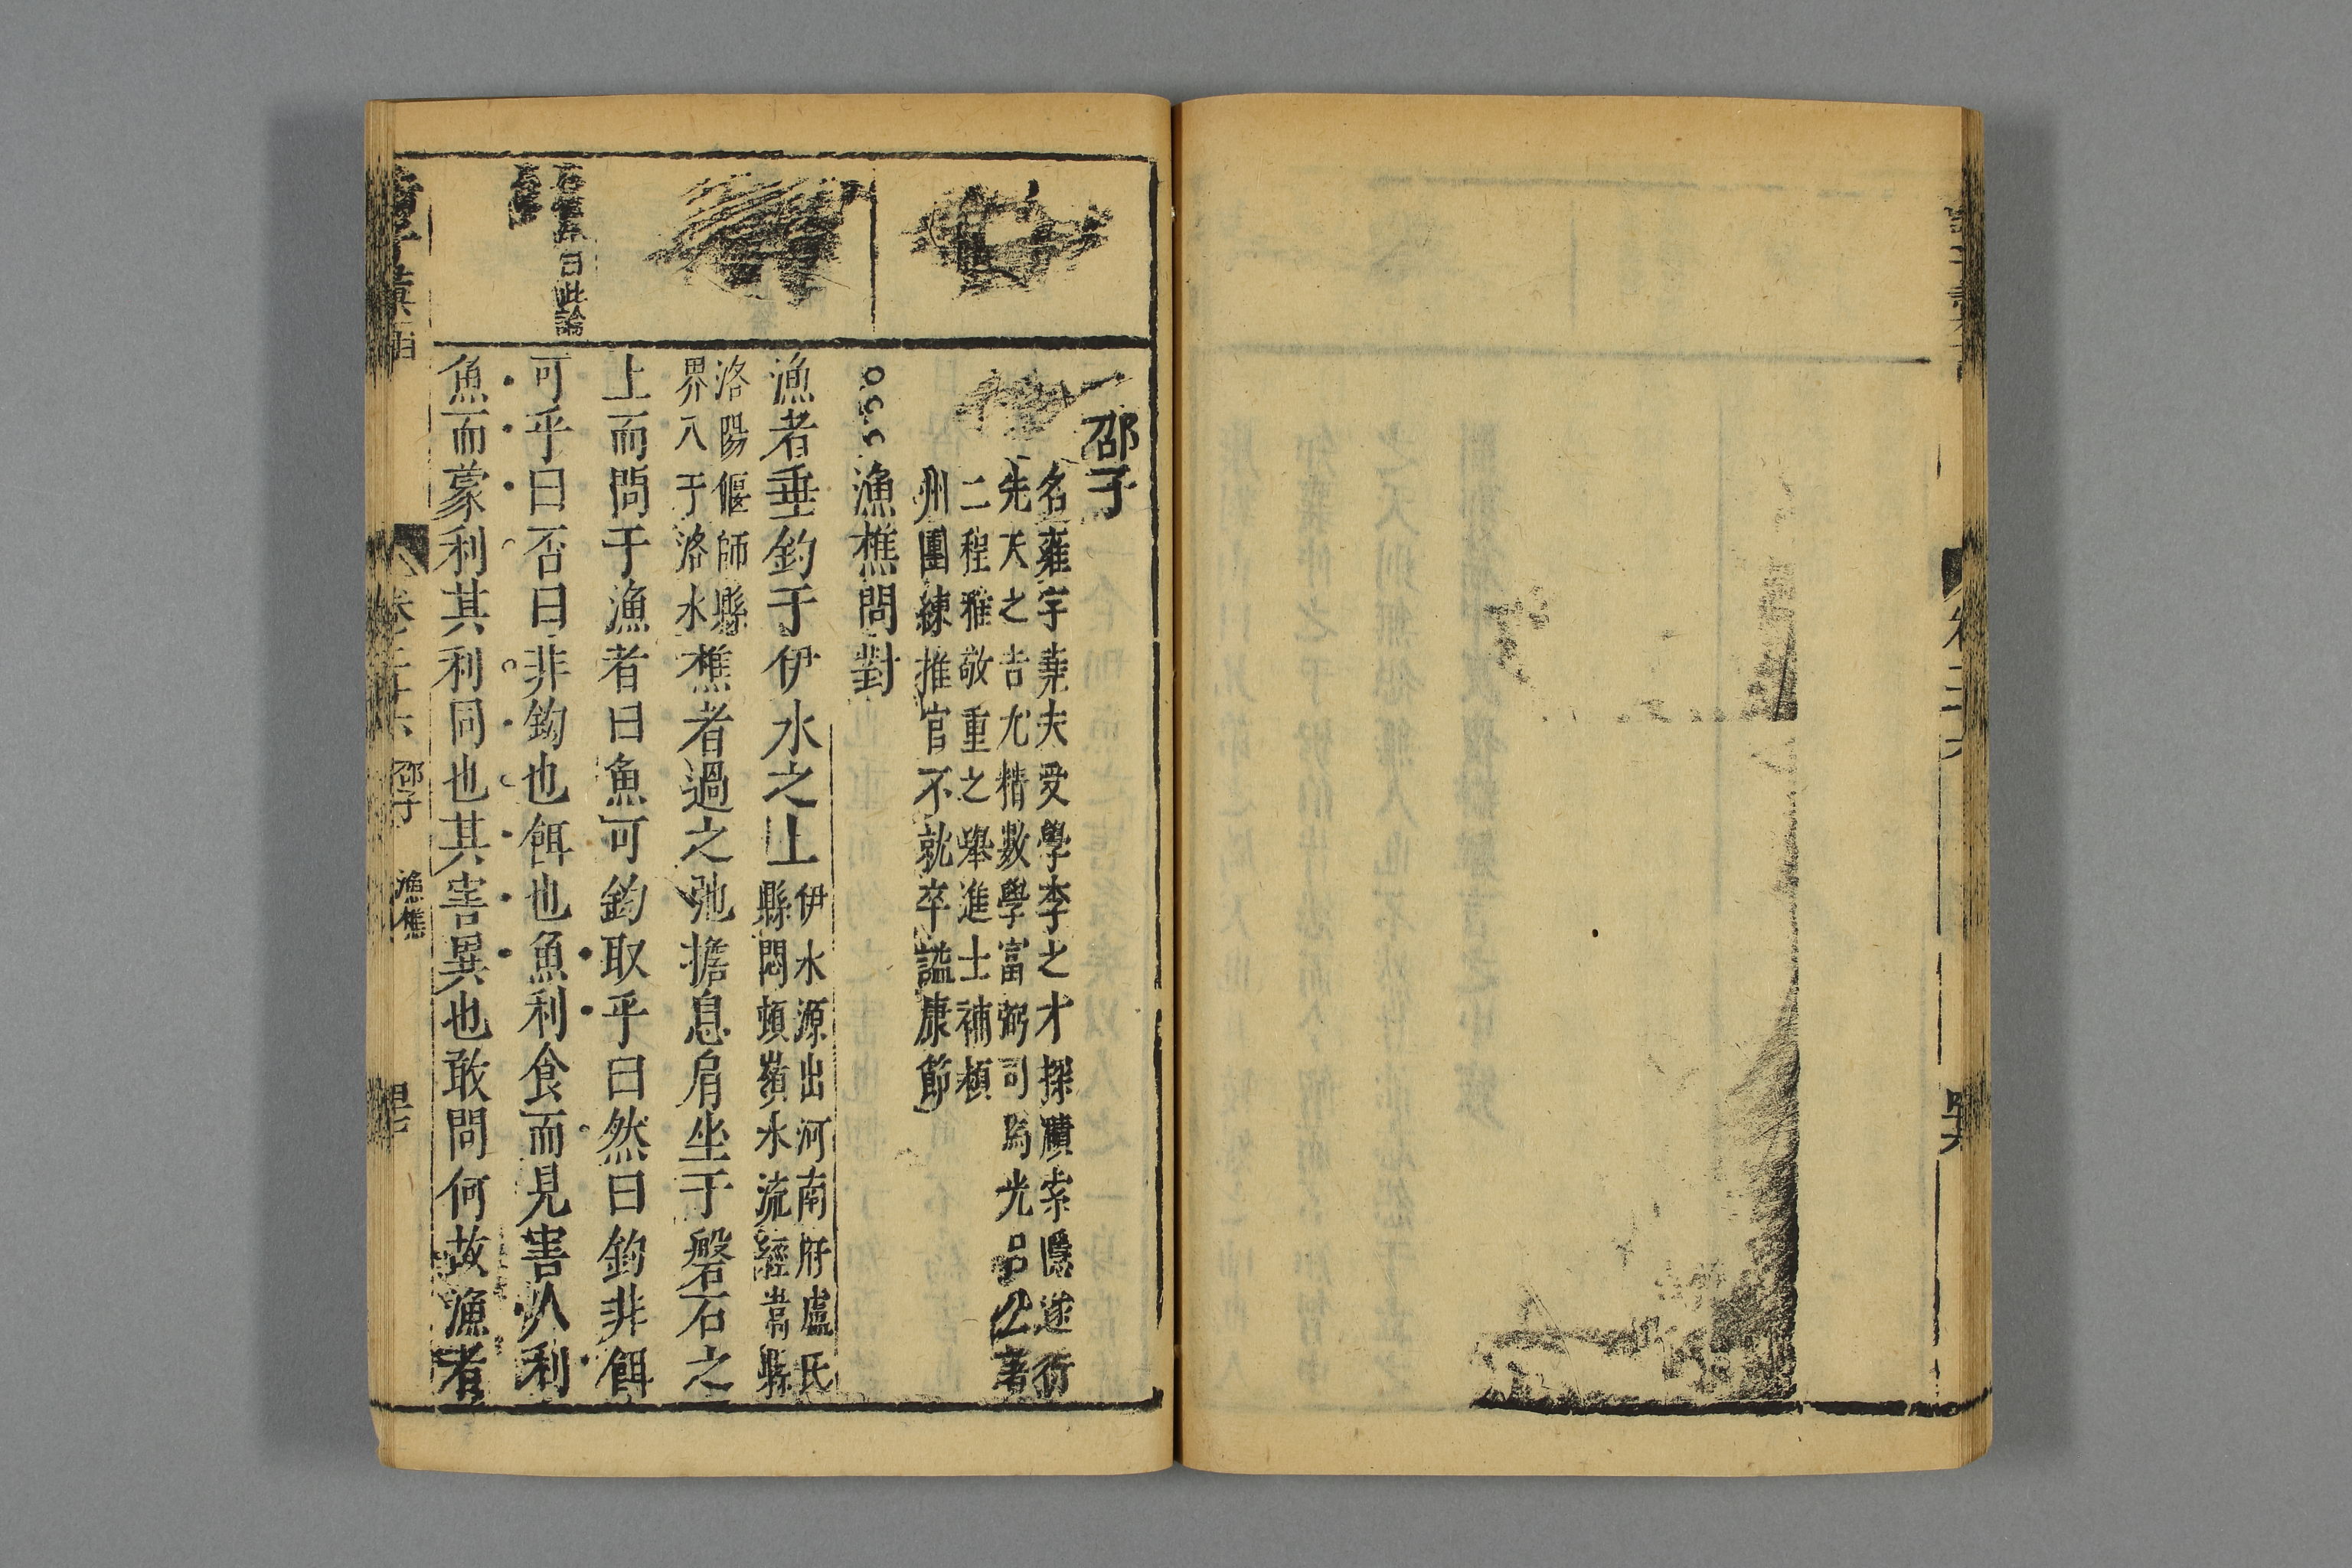 邵子
名雍字堯夫受學李之才探賾索隱遂衍
先天之吉尤精數學富弼司馬光呂公著
二程雅敬重之舉進士補潁
州團練推官不就卒謚康節
漁樵問對
漁者垂釣于伊水之上
伊水源出河南府盧氏
縣悶頓嶺水流經嵩縣
洛陽偃師縣
界入于洛水
樵者過之弛擔息肩坐于磐石之
上而問于漁者曰魚可鈎取乎曰然曰鈎非餌
可乎曰否曰非鈎也餌也魚利食而見害人利
魚而蒙利其利同也其害異也敢問何故漁者
曰此論
卷三十六
邵子
漁樵